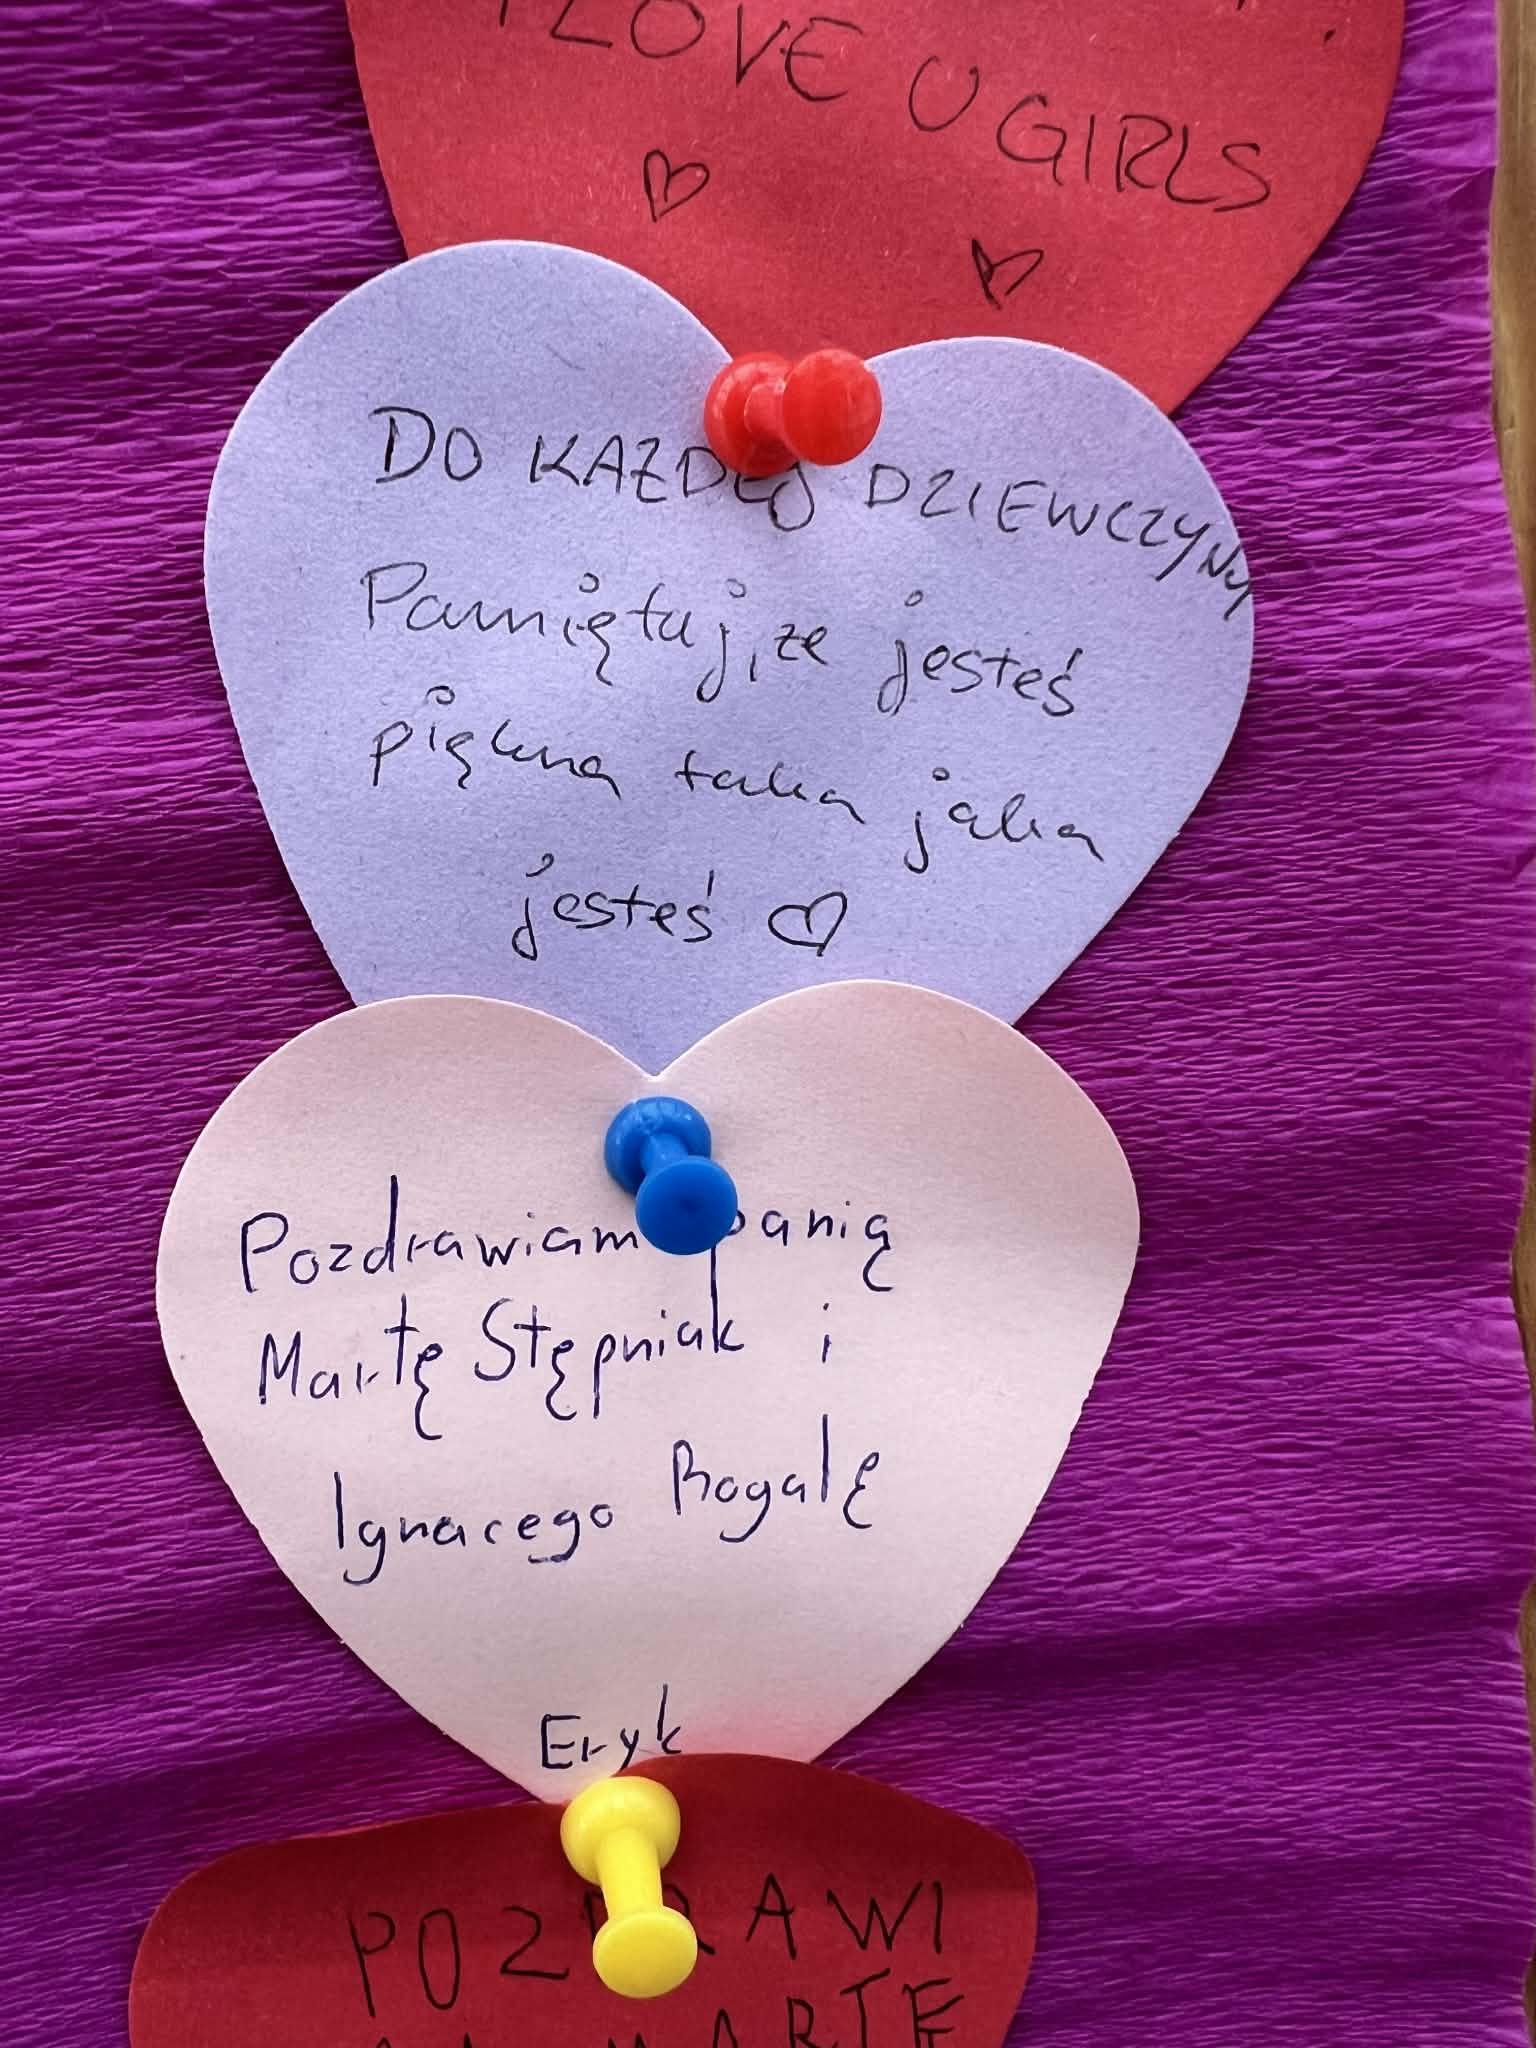 LOVE U GIRLS
DO KAŻDEJ DZIEWCZYNY
Pamiętaj, że jesteś
piękna taka jaka
jesteś ♡
Pozdrawiam panią
Martę Stępniak i
Ignacego Rogalę
Eryk
POZDRAWI
MARTĘ